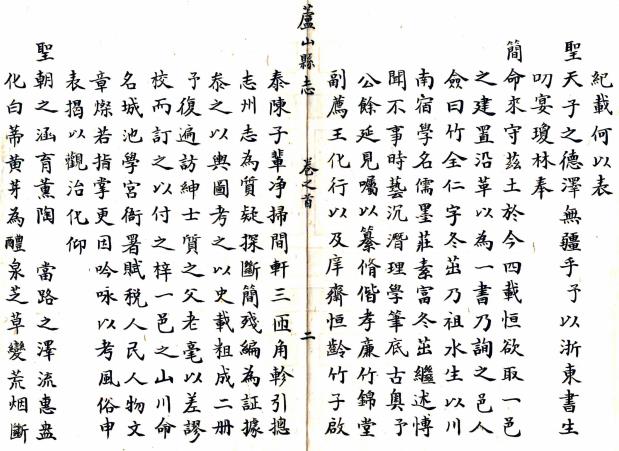 紀載何以表
聖天子之德澤無疆乎予以浙東書生
叨宴瓊林奉
簡命來守茲土於今四載恒欲取一邑
之建置沿革以為一書乃詢之邑人
僉曰竹全仁字冬茁乃祖水生以川
南宿學名儒墨莊素富冬茁繼述博
聞不事時藝沉潛理學筆底古奧予
公餘延見囑以纂脩偕孝廉竹錦堂
副薦王化行以及庠齋恒齡竹子啟
蘆山縣志 卷之首 二
泰陳子輩净掃間軒三匝角軫引摠
志州志為質疑探斷簡殘編為証據
叅之以輿圖考之以史載粗成二册
予復遍訪紳士質之父老毫以差謬
校而訂之以付之梓一邑之山川命
名城池學宮衙署賦稅人民人物文
章燦若指掌更因吟咏以考風俗申
表揭以觀治化仰
聖朝之涵育薰陶 當路之澤流惠盎
化白蒂黄芽為醴泉芝草變荒烟斷